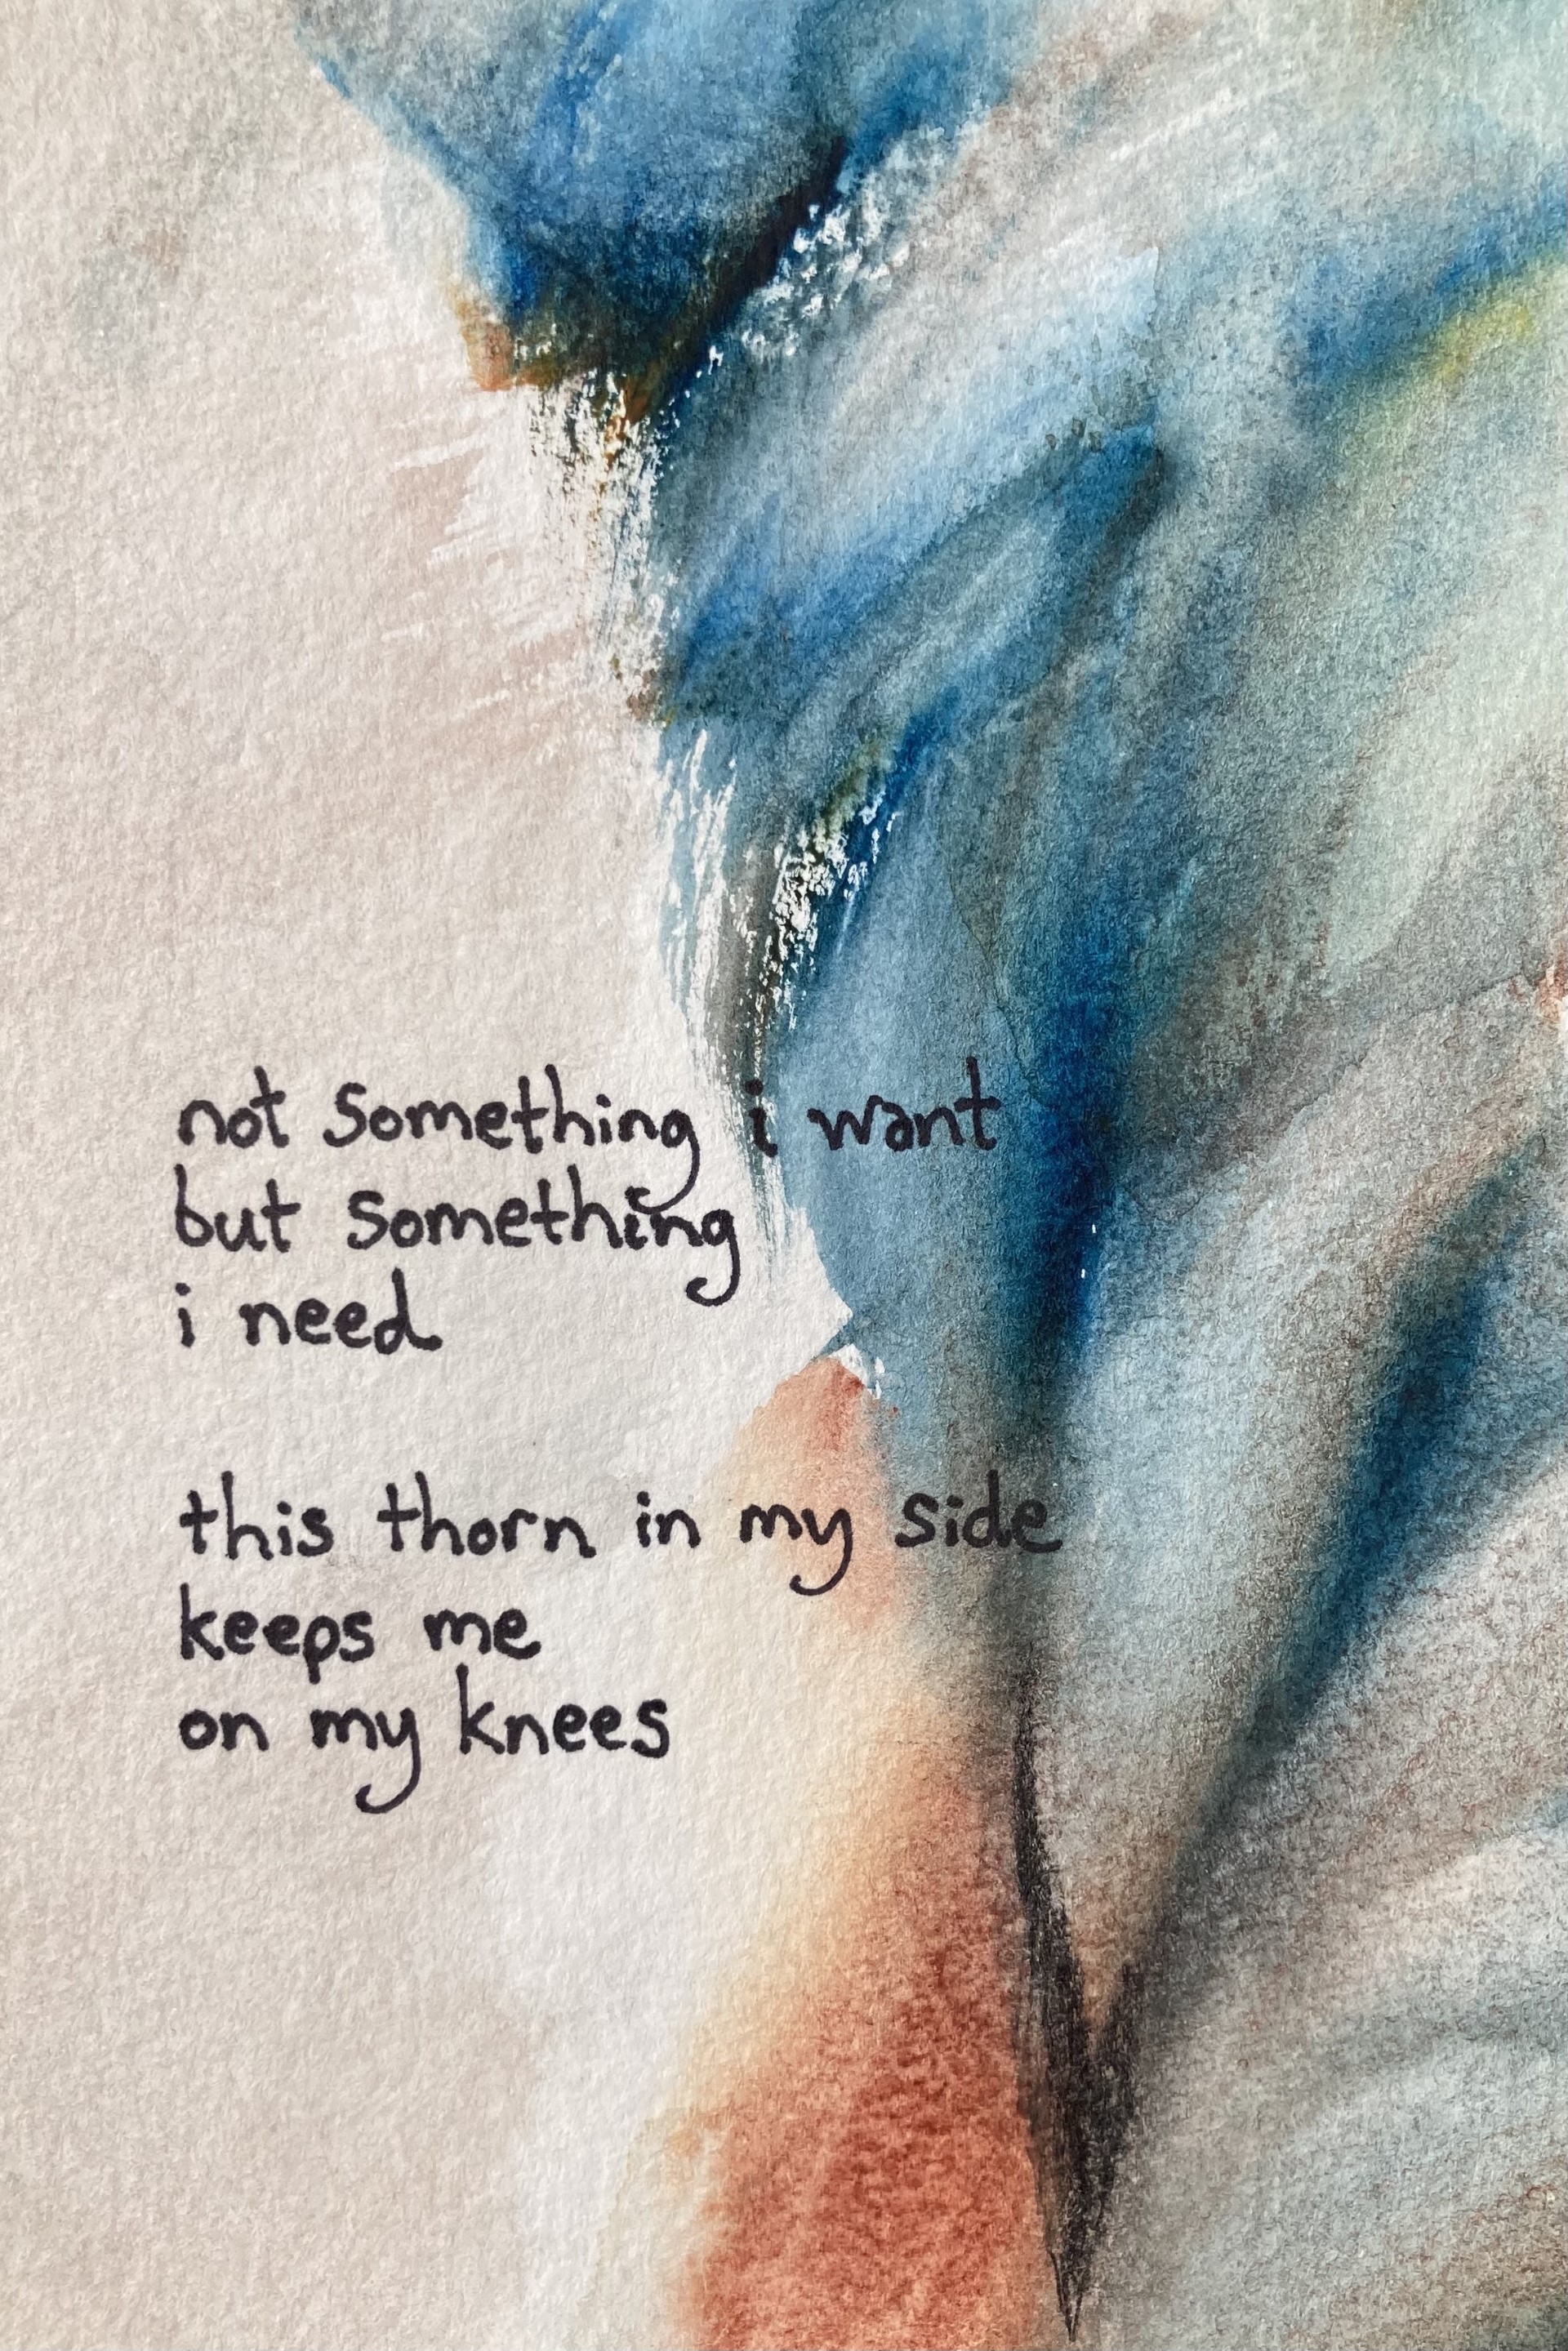 not something i want
but something
i need
this thorn in my side
keeps me
on my knees